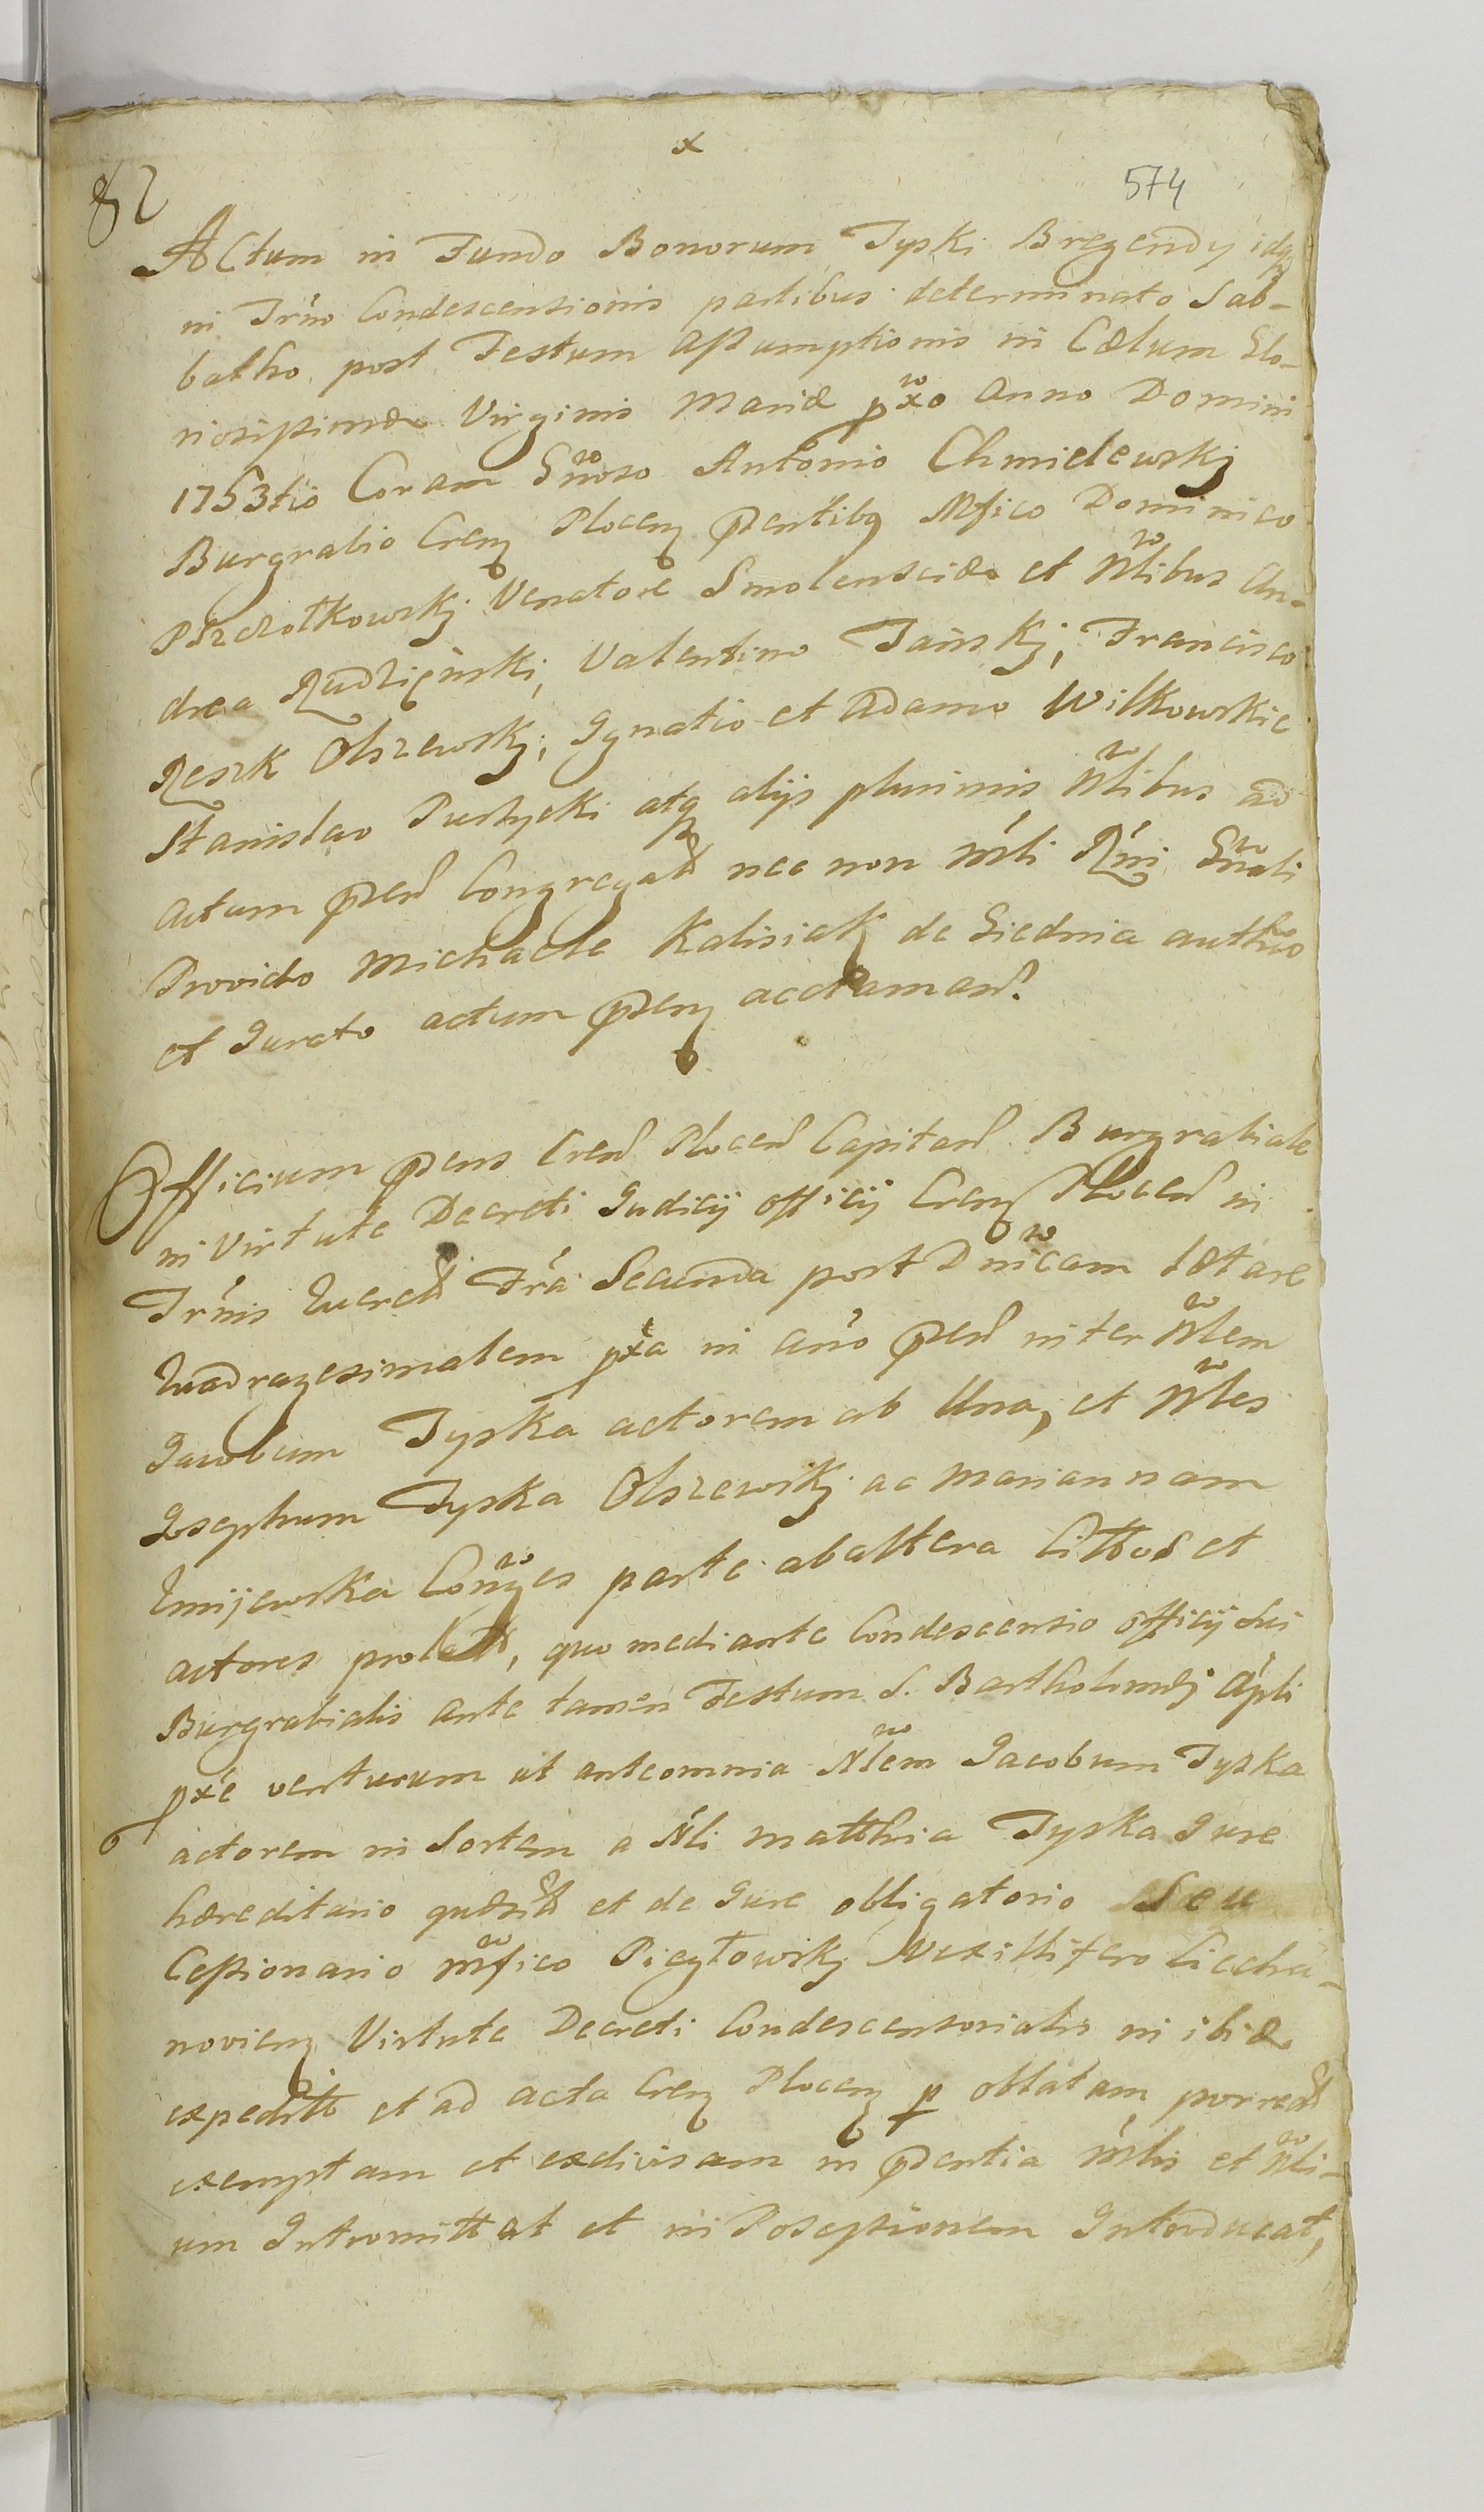 x
82
574
Actum in Fundo Bonorum Tyski Bregendy idq
in Trno Condescensionis partibus determinato Sab-
batho post Festum Assumptionis in Cælum Glo-
riosissimæ Virginis Mariæ pxo Anno Domini
1753tio Coram Gnoso Antonio Chmielewskj
Burgrabio Cren Plocen pentibq Mfico Dominico
Pszczołkowskj Venatore Smolensciæ et Nlibus An-
drea Rudzięński, Valentino Jańskj, Francisco
Reszk Olszewskj, Ignatio et Adamo Wilkowskie
Stanislao Pustycki atq alijs plurimis Nlibus ad
actum pzen Congregat nec non mli Rni Gnali
Provido Michaele Kalisiak de Siednia authco
et Jurato actum pzen acclaman.
Officium pens Cren Plocen Capitan Burgrabiale
in virtute Decreti Judicij officij Cren Plocen in
Trnis Querel Fra Secunda post Dnicam lætare
Quadragesimalem pxa in anno pzen inter Nlem
Jacobum Tyska actorem ab Una, et Nles
Josephum Tyska Olszewskj ac Mariannam
Kmijewska Conges parte ab altera Cittos et
actores prolati, quo mediante Condescensio officij sui
Burgrabialis ante tamen Festum S. Bartholomæj Apli
pxe venturum ut ante omnia Nlem Jacobum Tyska
actorem in Sortem a Nli Matthia Tyska Jure
hæreditario quæsit et de Jure obligatorio Seu
Cessionario mfico Pigłowskj Vexillifero Ciecha-
novien Virtute Decreti Condescensorialis in ibiđ
expedit et ad acta Cren Plocen p oblatam porrect
exemptam et exdivisam in pzentia mlis et Nli-
um Intromittat et in Possessionem Introducat,